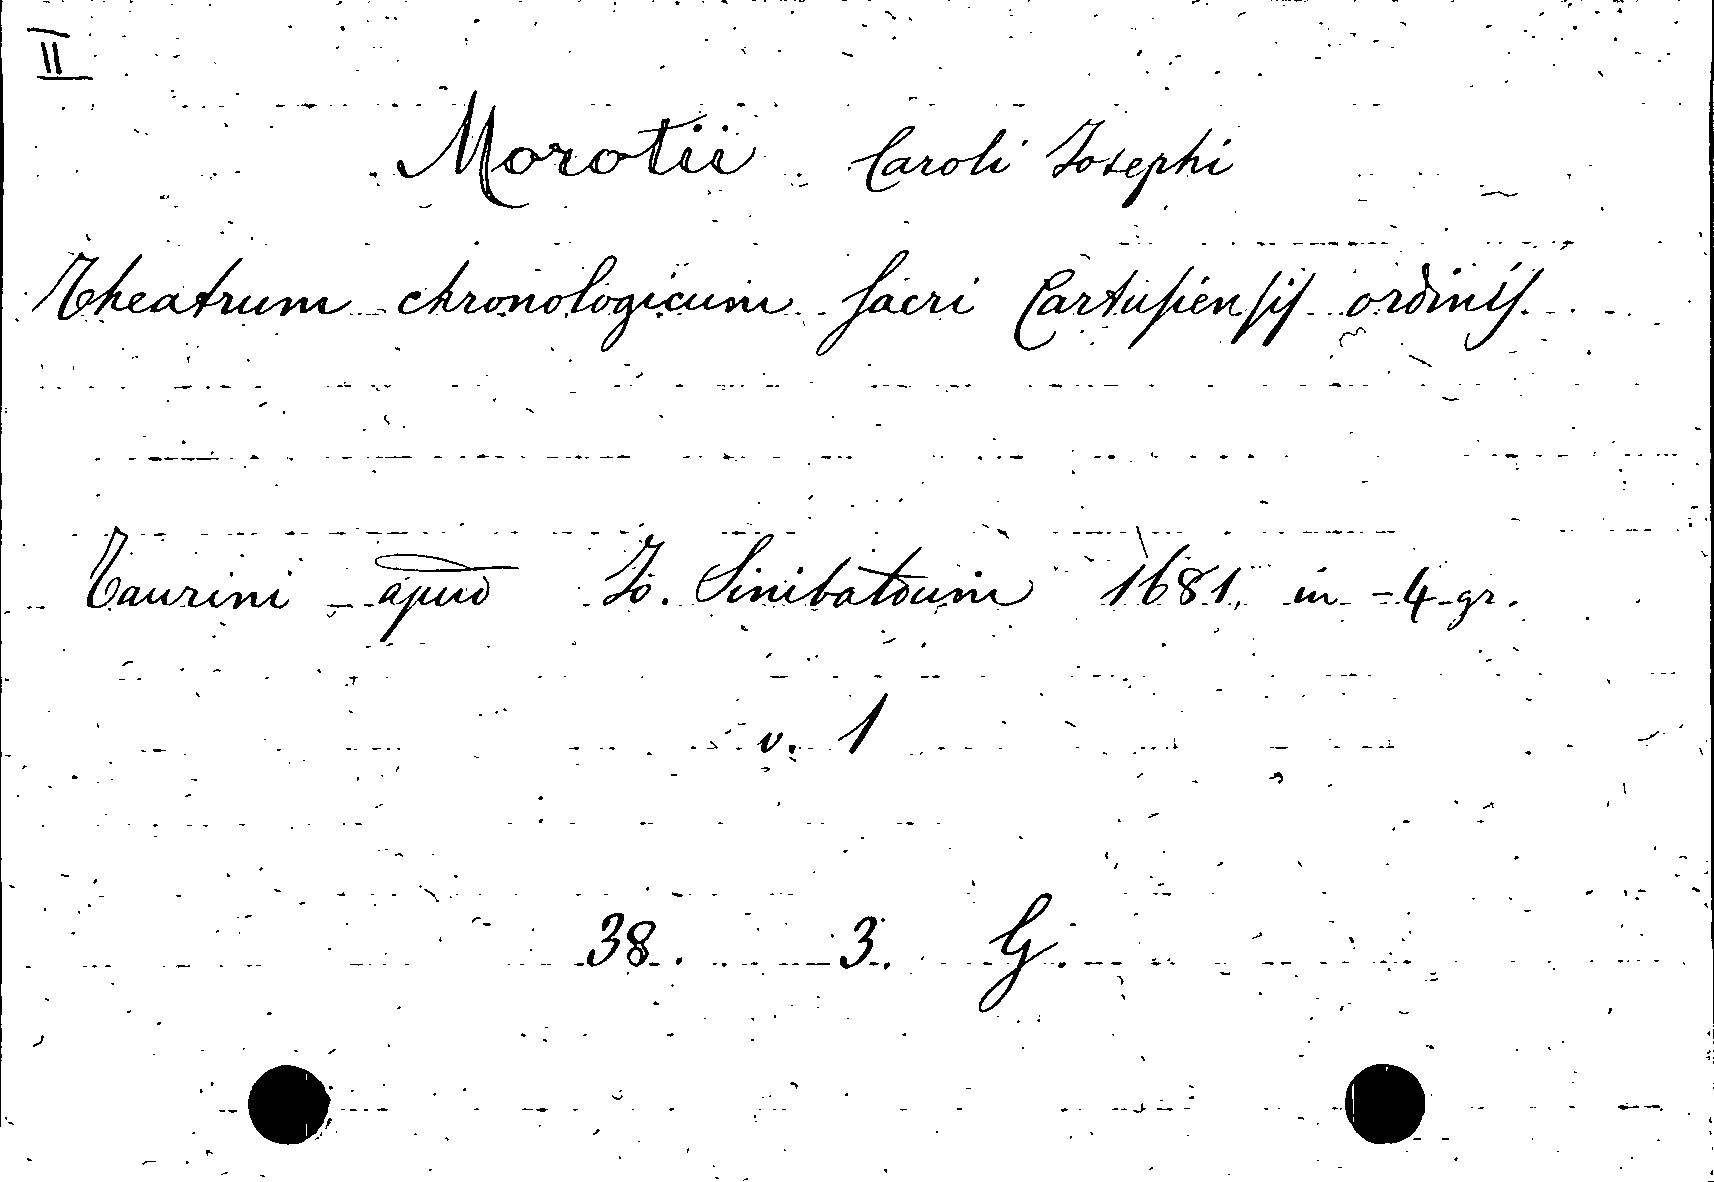 II
Morotii Caroli Josephi
Theatrum chronologicum sacri Cartusiensis ordinis
Taurini apud Jo. Sinibaldum 1681. in-4 gr.
v. 1
38. 3. G.